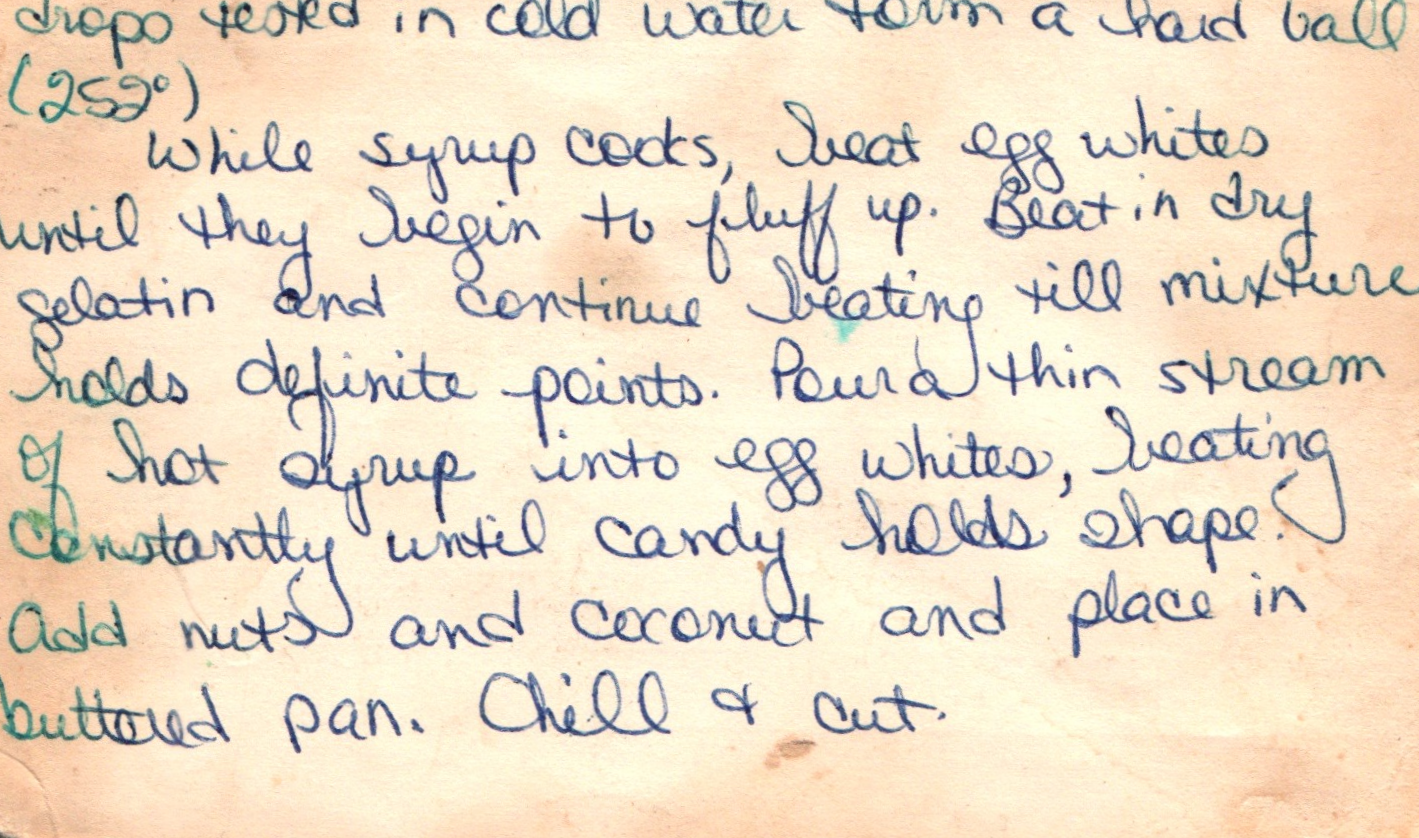 drops tested in cold water form a hard ball
(252°)
While syrup cooks, beat egg whites
until they begin to fluff up. Beat in dry
gelatin and continue beating till mixture
holds definite points. Pour a thin stream
of hot syrup into egg whites, beating
constantly until candy holds shape.
Add nuts and coconut and place in
buttered pan. Chill & cut.